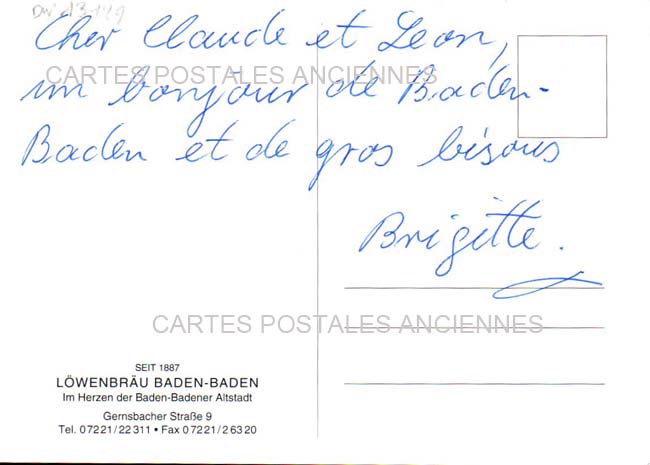 Cher Claude et Leon,
un bonjour de Baden-
Baden et de gros bisous
Brigitte.
CARTES POSTALES ANCIENNES
CARTES POSTALES ANCIENNES
SEIT 1887
LÖWENBRÄU BADEN-BADEN
Im Herzen der Baden-Badener Altstadt
Gernsbacher Straße 9
Tel. 07221/22311 • Fax 07221/26320